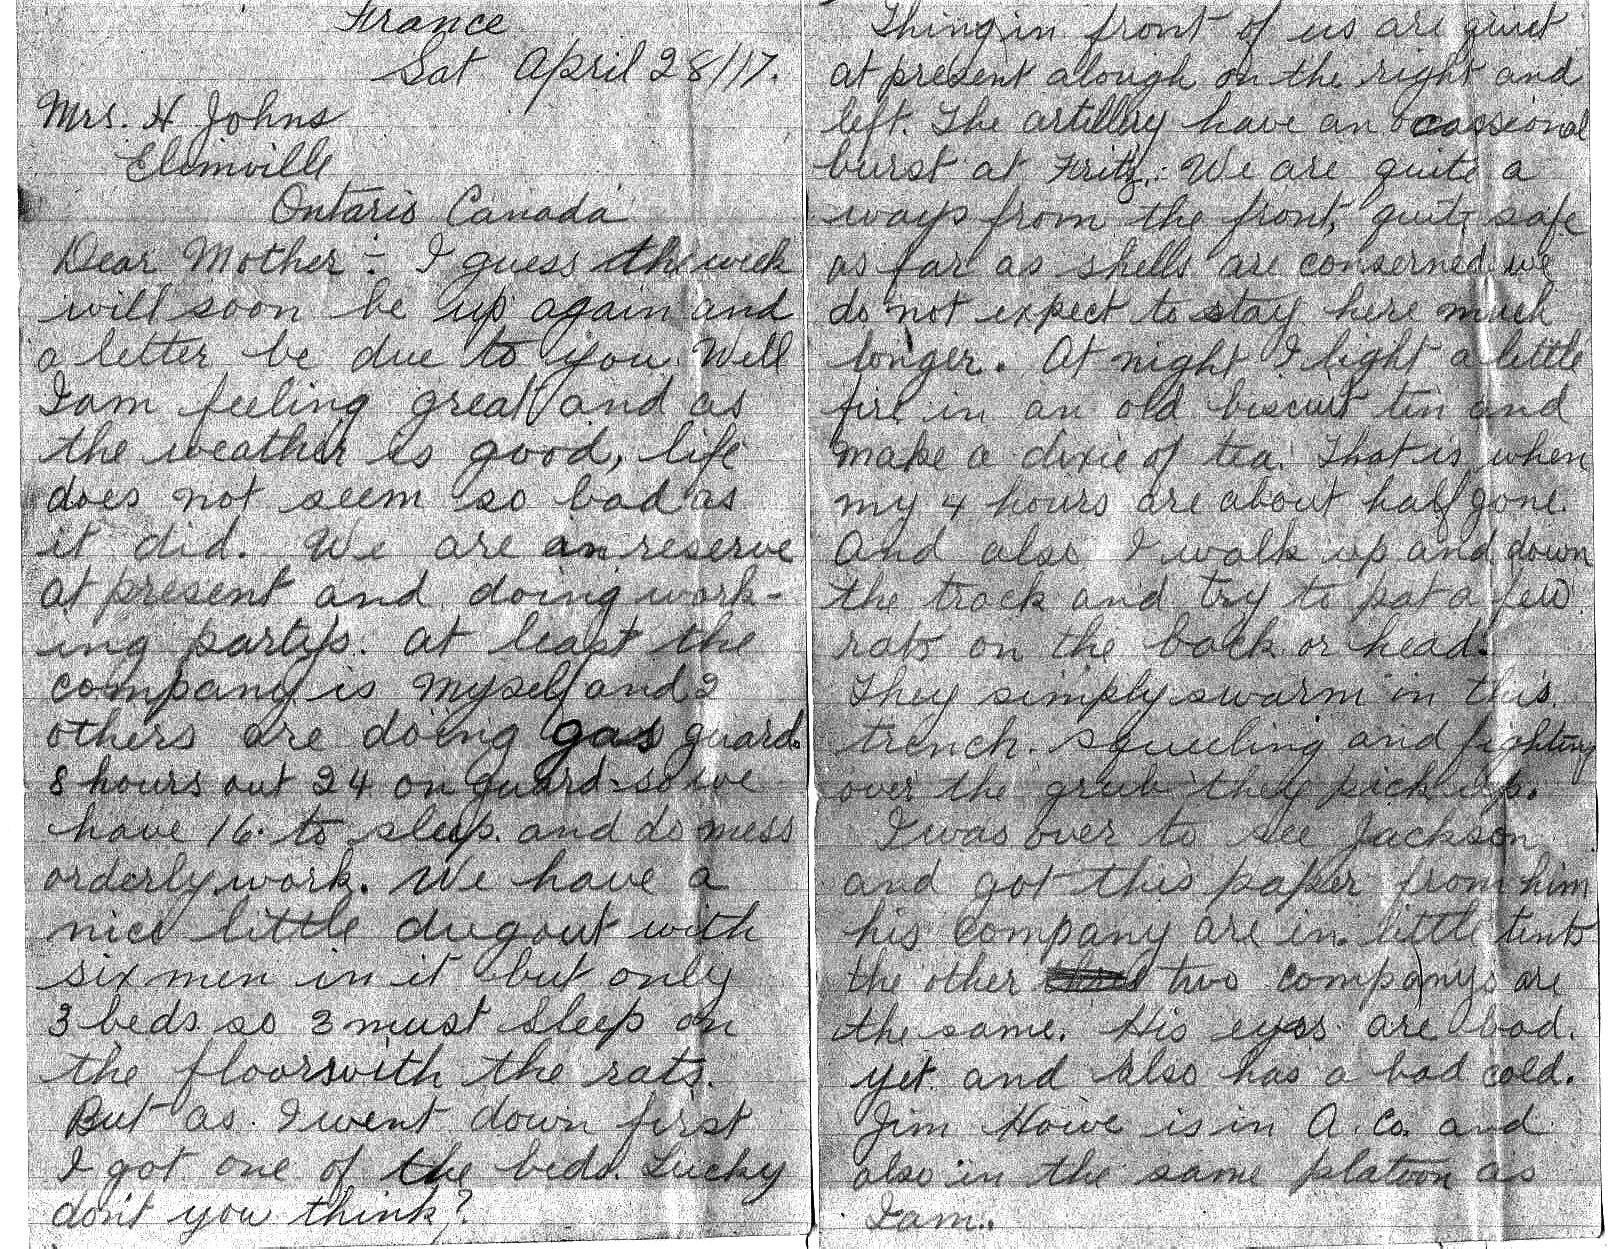 France
Sat April 28/17.
Mrs. H Johns
Elimville
Ontario Canada
Dear Mother:- I guess the week
will soon be up again and
a letter be due to you. Well
I am feeling great and as
the weather is good, life
does not seem so bad as
it did. We are in reserve
at present and doing work-
ing partys. at least the
company is myself and 2
others are doing gas guard.
8 hours out 24 on guard so we
have 16 to sleep. and do mess
orderly work. We have a
nice little dugout with
six men in it but only
3 beds so 3 must sleep on
the floor with the rats.
But as I went down first
I got one of the beds. Lucky
don't you think?
Thing in front of us are quiet
at present alough on the right and
left. The artillery have an ocassional
burst at Fritz. We are quite a
ways from the front, quite safe
as far as shells are conserned we
do not expect to stay here much
longer. At night I light a little
fire in an old biscuit tin and
make a dixie of tea. That is when
my 4 hours are about half gone.
And also I walk up and down
the track and try to pat a few
rats on the back or head.
They simply swarm in this
trench. squeeling and fighting
over the grub they pick up.
I was over to see Jackson
and got this paper from him
his company are in little tents
the other two companys are
the same. His eyes are bad.
yet and also has a bad cold.
Jim Howe is in A. Co. and
also in the same platoon as
I am.